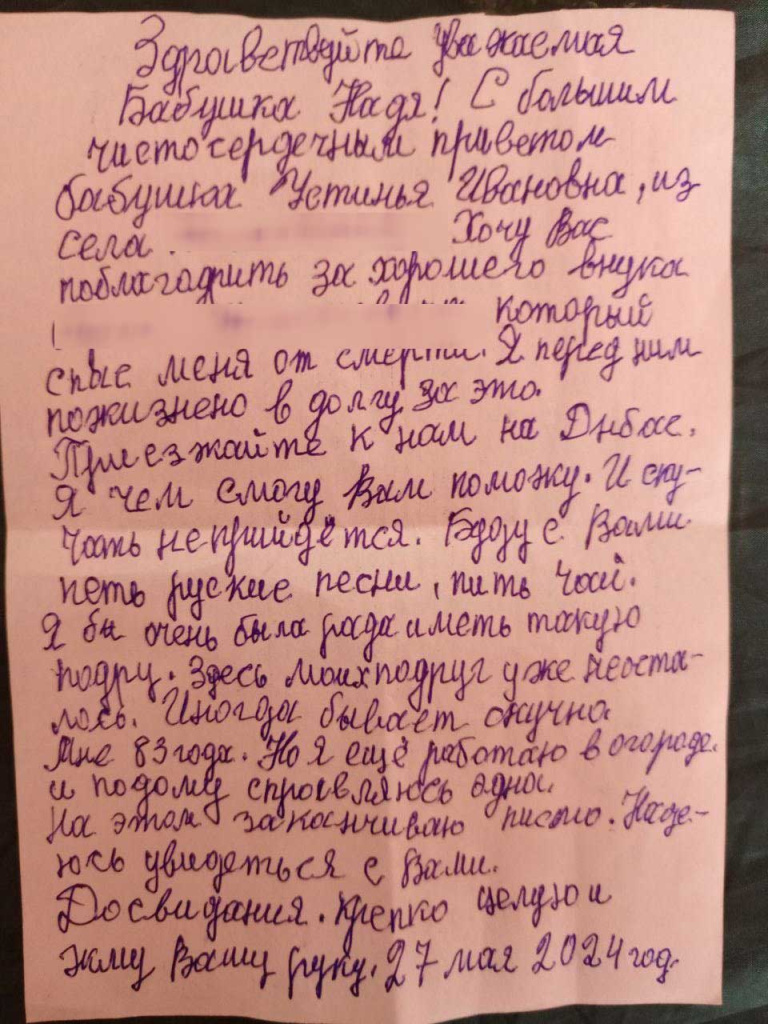 Здравствуйте уважаемая
Бабушка Надя! С большим
чистосердечным приветом
бабушка Устинья Ивановна, из
села Хочу Вас
поблагодрить за хорошего внука
который
спас меня от смерти. Я перед ним
пожизнено в долгу за это.
Приезжайте к нам на Днбас.
Я чем смогу Вам поможу. И ску-
чать неприйдётся. Буду с Вами
петь руские песни, пить чай.
Я бы очень была рада иметь такую
подру. Здесь моих подруг уже неоста-
лось. Иногда бывает скучно.
Мне 83 года. Но я ещё работаю в огороде.
и подому справляюсь одна.
На этом заканчиваю писмо. Наде-
юсь увидеться с Вами.
Досвидания. Крепко целую и
жму Вашу руку. 27 мая 2024 год.